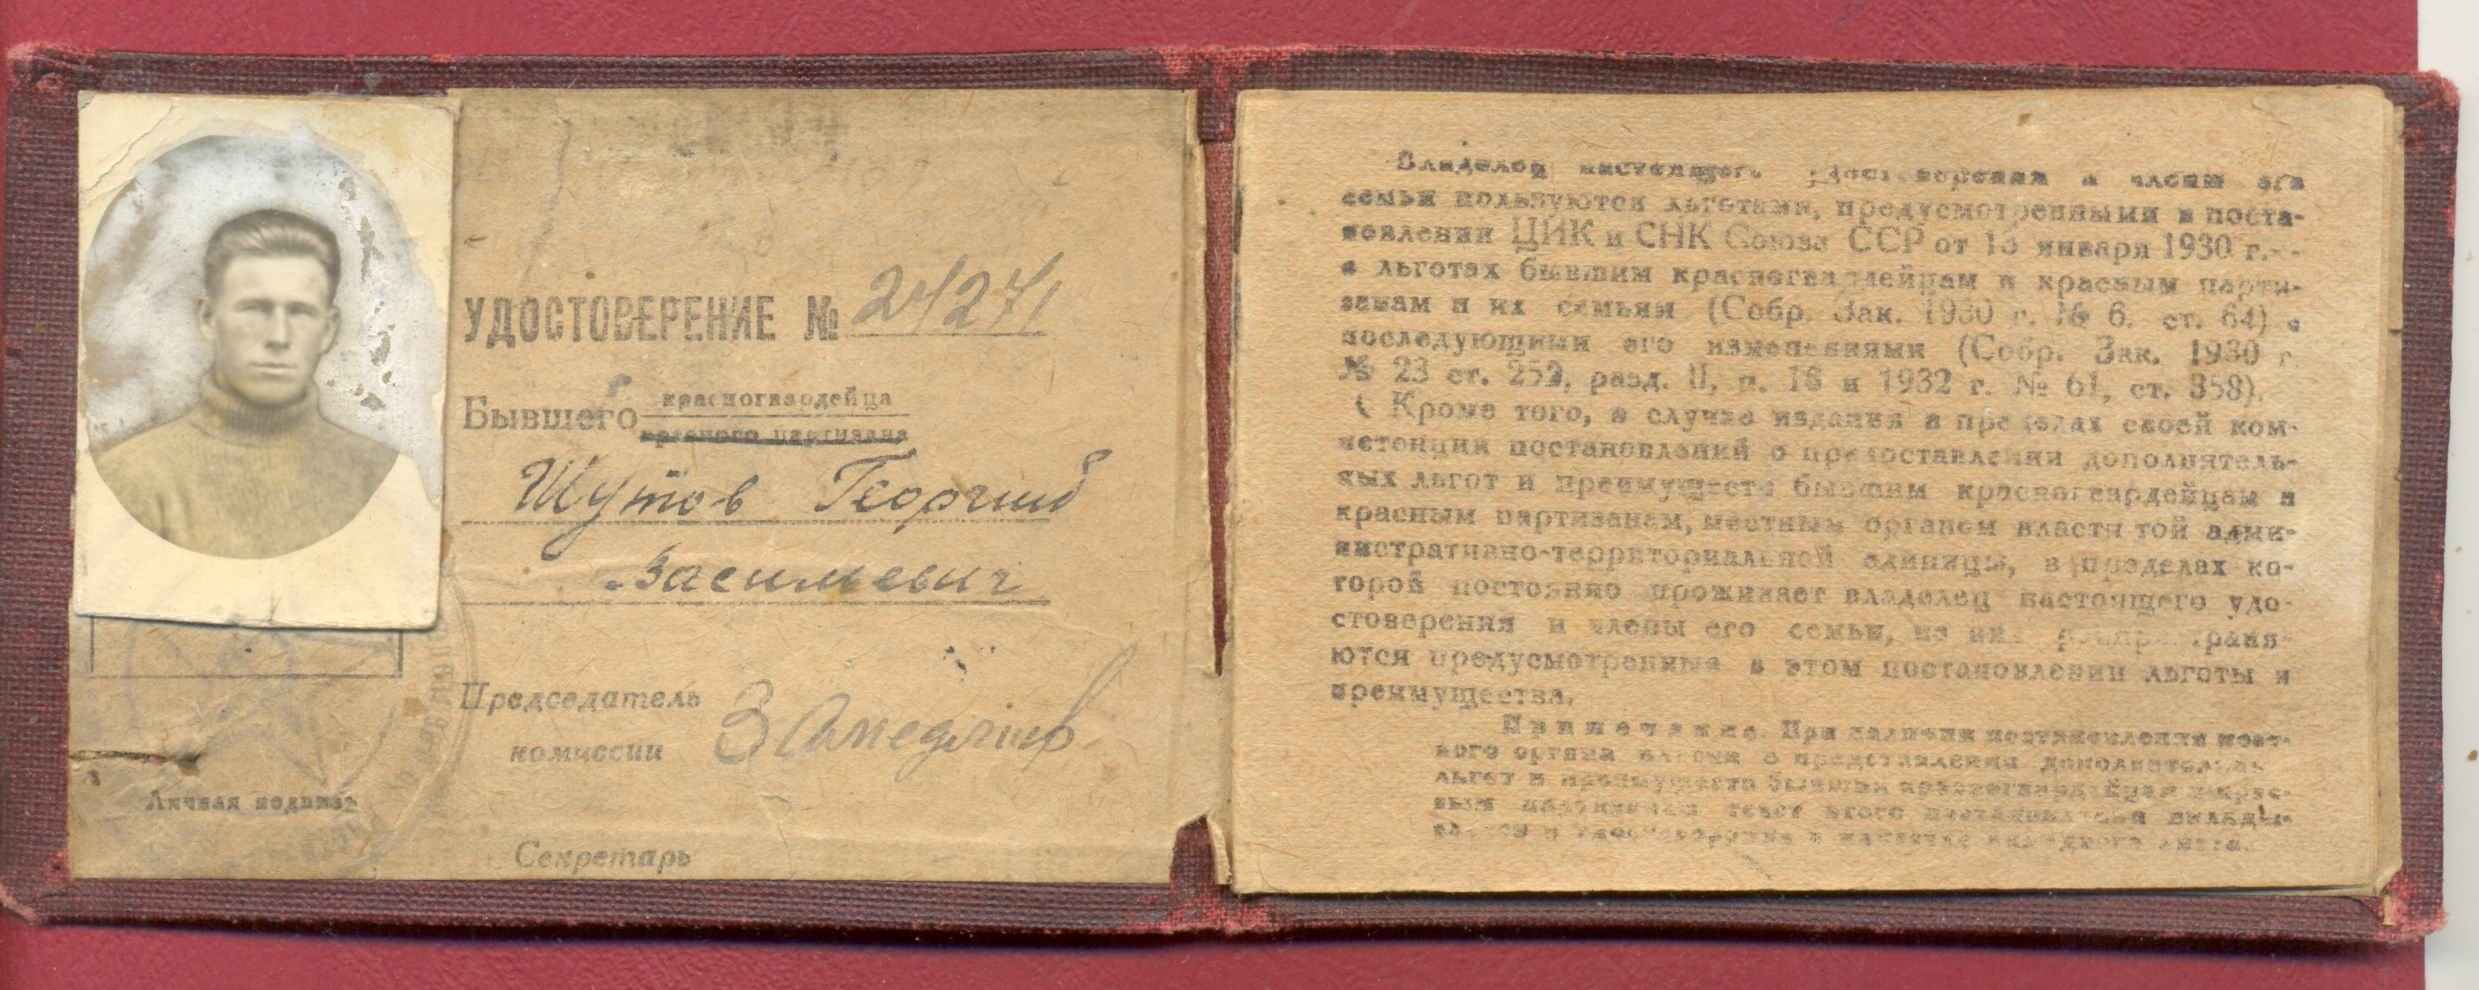 УДОСТОВЕРЕНИЕ № 24271
Бывшего красногвардейца
красного партизана
Шутов Георгий
Васильевич
Председатель
комиссии
Личная подпись
Секретарь
Владелец настоящего удостоверения и члены его
семьи пользуются льготами, предусмотренными в поста-
новлении ЦИК и СНК Союза ССР от 13 января 1930 г.--
о льготах бывшим красногвардейцам и красным парти-
занам и их семьям (Собр. Зак. 1930 г. № 6. ст. 64) с
последующими его изменениями (Собр. Зак. 1930 г.
№ 23 ст. 252, разд. II, п. 18 и 1932 г. № 61, ст. 358).
Кроме того, в случае издания в пределах своей ком-
петенции постановлений о предоставлении дополнитель-
ных льгот и преимуществ бывшим красногвардейцам и
красным партизанам, местным органом власти той адми-
нистративно-территориальной единицы, в пределах ко-
торой постоянно проживает владелец настоящего удо-
стоверения и члены его семьи, на них распространя-
ются предусмотренные в этом постановлении льготы и
преимущества.
Примечание. При наличии постановления мест-
ного органа власти о представлении дополнительн.
льгот и преимуществ бывшим красногвардейцам и крас-
ным партизанам текст этого постановления вклады-